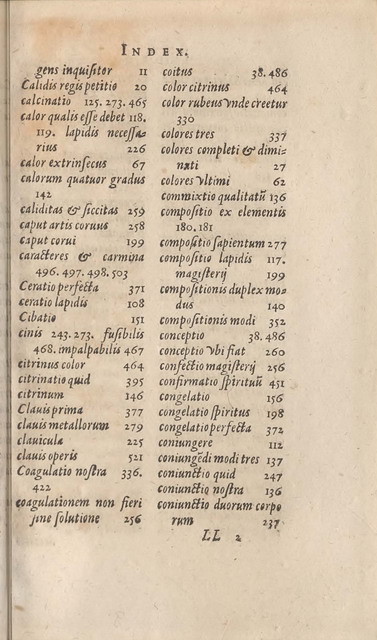 INDEX.
gens inquisitor 11
Calidis regis petitio 20
calcinatio 125. 273. 465
calor qualis esse debet 118.
119. lapidis necessa-
rius 226
calor extrinsecus 67
calorum quatuor gradus
142
caliditas & siccitas 259
caput artis coruus 258
caput corui 199
caracteres & carmina
496. 497. 498. 503
Ceratio perfecta 371
ceratio lapidis 108
Cibatio 151
cinis 243. 273. fusibilis
468. impalpabilis 467
citrinus color 464
citrinatio quid 395
citrinum 146
Clauis prima 377
clauis metallorum 279
clauicula 225
clauis operis 521
Coagulatio nostra 336.
422
coagulationem non fieri
sine solutione 256
coitus 38. 486
color citrinus 464
color rubeus vnde creetur
330
colores tres 337
colores completi & dimi-
nuti 27
colores vltimi 62
commixtio qualitatũ 136
compositio ex elementis
180. 181
compositio sapientum 277
compositio lapidis 117.
magisterij 199
compositionis duplex mo-
dus 140
compositionis modi 352
conceptio 38. 486
conceptio vbi fiat 260
confectio magisterij 256
confirmatio spirituũ 451
congelatio 156
congelatio spiritus 198
congelatio perfecta 372
coniungere 112
coniungẽdi modi tres 137
coniunctio quid 247
coniunctio nostra 136
coniunctio duorum corpo
rum 237
LL 2